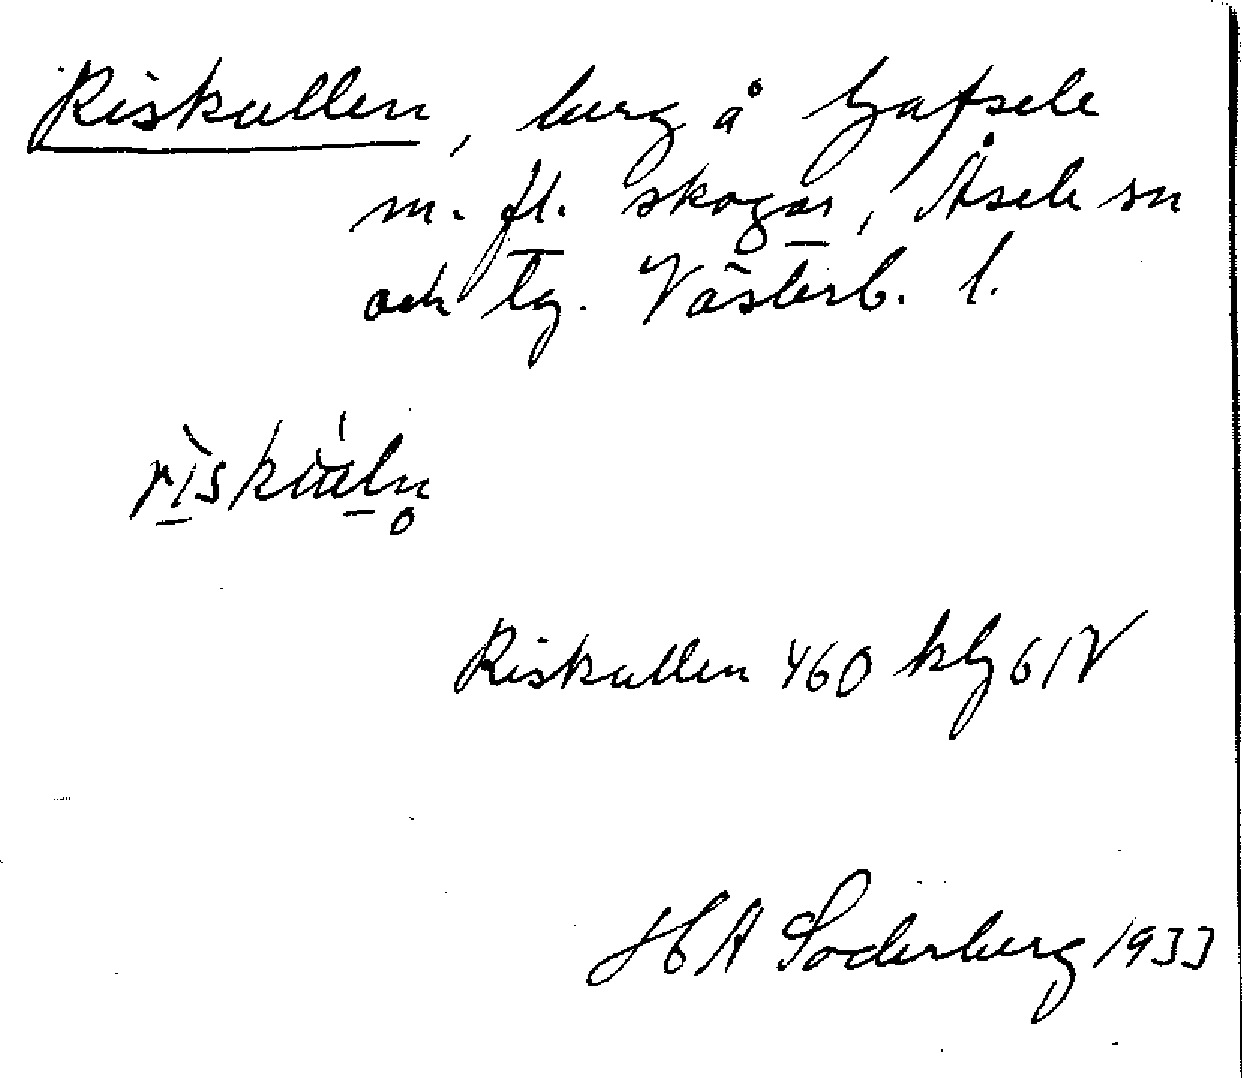 Riskullen, berg å Gafsele
m. fl. skogar, Åsele sn
och lg. Västerb. l.
Riskullen 460 kbg 61V
H A Söderberg 1933